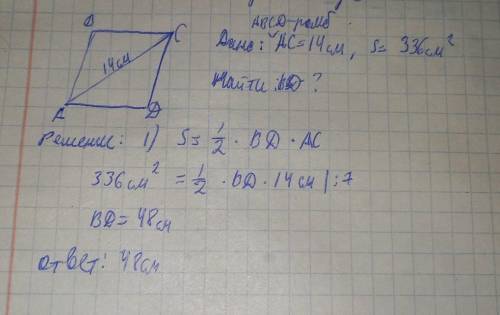 ABCD-ромб
B
C
14см
A
D
Дано: AC=14см, S= 336см²
Найти: BD?
Решение: 1) S= 1/2 · BD · AC
336см² = 1/2 · BD · 14см |:7
BD= 48см
Ответ: 48см